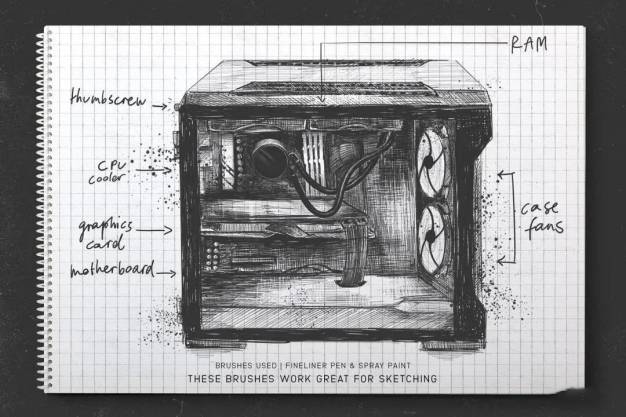 RAM
thumbscrew
CPU
cooler
graphics
card
motherboard
case
fans
BRUSHES USED | FINELINER PEN & SPRAY PAINT
THESE BRUSHES WORK GREAT FOR SKETCHING